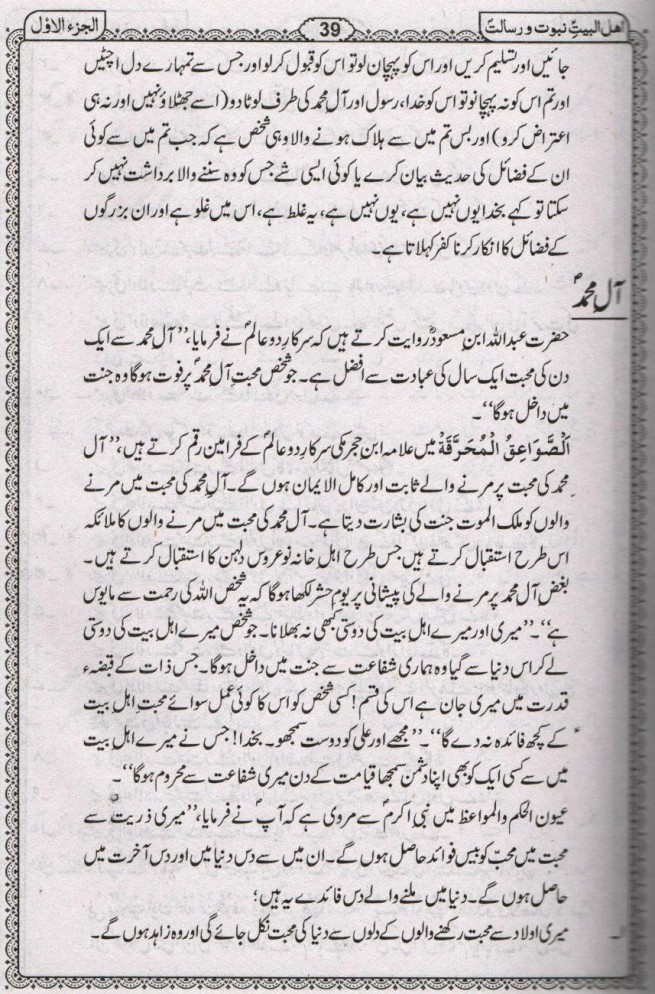 اهل البیتؑ نبوت و رسالتؐ
39
الجزء الاوّل
جائیں اور تسلیم کریں اور اس کو پہچان لو تو اس کو قبول کر لو اور جس سے تمہارے دل اچٹیں
اور تم اس کو نہ پہچانو تو اس کو خدا، رسول اور آلِ محمد کی طرف لوٹا دو (اسے جھٹلاؤ نہیں اور نہ ہی
اعتراض کرو) اور بس تم میں سے ہلاک ہونے والا وہی شخص ہے کہ جب تم میں سے کوئی
ان کے فضائل کی حدیث بیان کرے یا کوئی ایسی شے جس کو وہ سننے والا برداشت نہیں کر
سکتا تو کہے بخدا یوں نہیں ہے، یوں نہیں ہے، یہ غلط ہے، اس میں غلو ہے اور ان بزرگوں
کے فضائل کا انکار کرنا کفر کہلاتا ہے۔
آلِ محمدؐ
حضرت عبداللہ ابنِ مسعودؓ روایت کرتے ہیں کہ سرکارِ دو عالمؐ نے فرمایا، ”آل محمد سے ایک
دن کی محبت ایک سال کی عبادت سے افضل ہے۔ جو شخص محبتِ آلِ محمدؐ پر فوت ہوگا وہ جنت
میں داخل ہوگا“۔
اَلصَّوَاعِقُ الْمُحَرَّقَةْ میں علامہ ابن حجر مکی سرکارِ دو عالمؐ کے فرامین رقم کرتے ہیں، ”آل
محمد کی محبت پر مرنے والے ثابت اور کامل الایمان ہوں گے۔ آلِ محمد کی محبت میں مرنے
والوں کو ملک الموت جنت کی بشارت دیتا ہے۔ آل محمد کی محبت میں مرنے والوں کا ملائکہ
اس طرح استقبال کرتے ہیں جس طرح اہلِ خانہ نو عروس دلہن کا استقبال کرتے ہیں۔
بغضِ آل محمد پر مرنے والے کی پیشانی پر یومِ حشر لکھا ہوگا کہ یہ شخص اللہ کی رحمت سے مایوس
ہے“۔ ”میری اور میرے اہل بیت کی دوستی کبھی نہ بھلانا۔ جو شخص میرے اہل بیت کی دوستی
لے کر اس دنیا سے گیا وہ ہماری شفاعت سے جنت میں داخل ہوگا۔ جس ذات کے قبضہء
قدرت میں میری جان ہے اس کی قسم! کسی شخص کو اس کا کوئی عمل سوائے محبتِ اہل بیت
کے کچھ فائدہ نہ دے گا“۔ ”مجھے اور علی کو دوست سمجھو۔ بخدا! جس نے میرے اہل بیت
میں سے کسی ایک کو بھی اپنا دشمن سمجھا قیامت کے دن میری شفاعت سے محروم ہوگا“۔
عیون الحکم والمواعظ میں نبیِ اکرمؐ سے مروی ہے کہ آپؐ نے فرمایا، ”میری ذریت سے
محبت میں محبّ کو بیس فوائد حاصل ہوں گے۔ ان میں سے دس دنیا میں اور دس آخرت میں
حاصل ہوں گے۔ دنیا میں ملنے والے دس فائدے یہ ہیں؛
۱۔ میری اولاد سے محبت رکھنے والوں کے دلوں سے دنیا کی محبت نکل جائے گی اور وہ زاہد ہوں گے۔